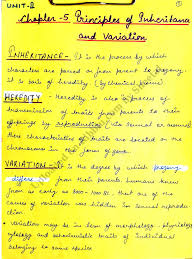 UNIT-2
Chapter-5 Principles of Inheritance
and Variation
INHERITANCE - It is the process by which
characters are passed on from parent to progeny
it is basis of heredity
HEREDITY - Heredity is also a process of
transmission of traits from parents to their
offsprings by reproduction sexual or asexual
characteristics traits are located on the
chromosomes in form of genes
VARIATION - It is the degree by which progeny
differ from their parents. humans knew
from as early as 8000-1000 BC that one of the
causes of variation was hidden in sexual reprodu-
ction
variation may be in term of morphology, physiology
and traits of individual
belonging to same species